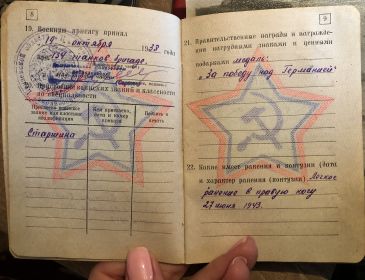 8
19. Военную присягу принял
19 октября 1938 года
при 134 танков. бригаде.
Присвоение воинских званий и классности
по специальности
Присвоено воинское звание или классная квалификация
Кем присвоено, дата и номер приказа
Подпись и печать
Старшина
9
21. Правительственные награды и награждение нагрудными знаками и ценными
подарками медаль:
"За победу над Германией"
22. Какие имеет ранения и контузии (дата
и характер ранения (контузии) Легкое
ранение в правую ногу
27 июня 1943.